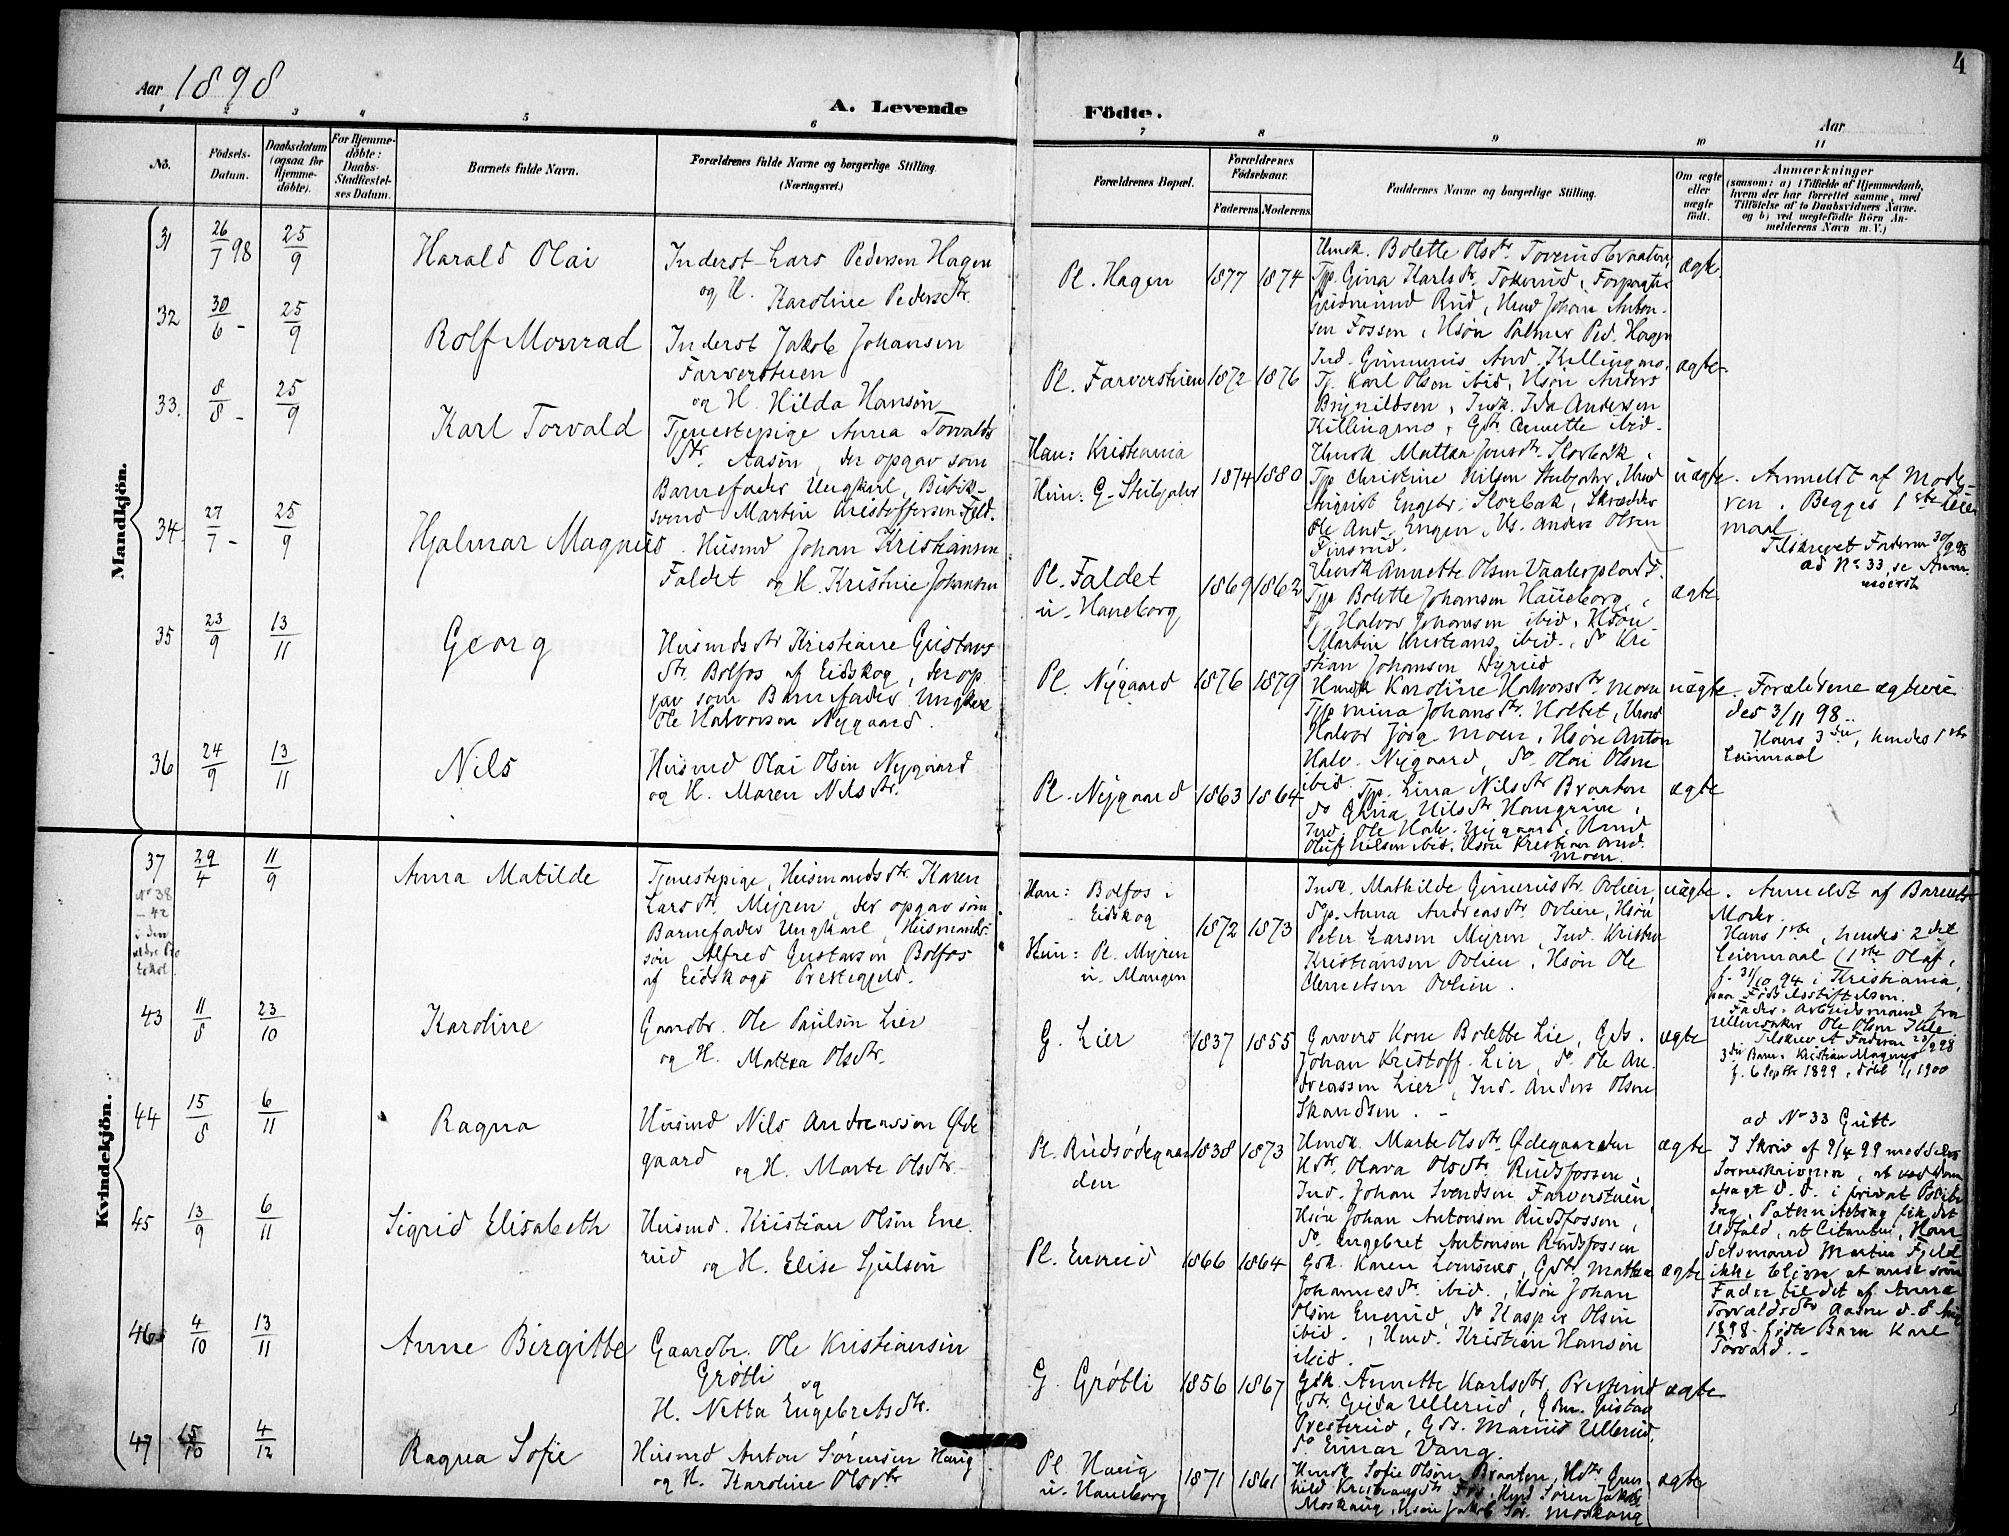 4
Aar 1898
A. Levende
Födte.
Aar
1 2 3 4 5 6
7 8 9 10 11
No.
Födsels-
Datum.
Daabsdatum
(ogsaa for
Hjemme-
döbte).
For Hjemme-
döbte:
Daabs-
Stadfæstel-
ses Datum.
Barnets fulde Navn.
Forældrenes fulde Navne og borgerlige Stilling.
(Næringsvei.)
Forældrenes Bopæl.
Forældrenes
Födselsaar.
Faderens.
Moderens.
Faddernes Navne og borgerlige Stilling.
Om ægte
eller
uægte
födt.
Anmærkninger
(saasom: a) i Tilfælde af Hjemmedaab,
hvem der har forrettet samme, med
Tilföielse af to Daabsvidners Navne.
og b) ved uegtefödte Börn An-
melderens Navn m. V.)
Mandkjön.
31 26/7 98 25/9 Harald Olai
Inderst Lars Pedersen Hagen
og H. Karoline Pedersdtr.
Pl. Hagen 1877 1874
Umdk. Bolette Olsdtr. Toverudbraaten,
Tjp. Gina Karlsdtr. Tokerud,
Rud, Umd Johan Anton-
sen Fossen, Hsøn Palmer Ped. Hagen
ægte.
32 30/6 - 25/9 Rolf Monrad
Inderst Jakob Johansen
Farverstuen
og H. Hilda Hansen
Pl. Farverstuen 1872 1876
Ind. Gunnerius And. Killingmo,
Tj. Karl Olsen ibid, Hsøn Anders
Brynildsen, Indk. Ida Andersen
Killingmo, Gdtr. Annette ibid.
ægte.
33. 8/8 - 25/9 Karl Torvald
Tjenestepige Anna Torvalds
dtr. Aasen, der opgav som
Barnefader Ungkarl, Butik-
svend Martin Kristoffersen Fjeld.
Han: Kristiania
Hun: G. Stubjaher 1874 1880
Umdk Mathea Jensdtr. Slorbak,
Tjp Christine Nilsen Stubjaher, Umd
August Engebr. Slorbak, Skrædder
Ole And. Engen, Us. Anders Olsen
Finsrud.
uægte. Anmeldt af Mode-
ren. Begges 1ste Leier
maal
Tilskrevet Faderen 30/9 98
ad No 33, se Anm.
nederst
34. 27/7 - 25/9 Hjalmar Magnus
Husmd Johan Kristiansen
Faldet og H. Kristine Johansen
Pl. Faldet
u. Haneborg 1869 1862
Umdk Annette Olsen Vaalerplads.
Tjp Bolette Johansen Haneborg,
Tj Halvor Johansen ibid. Hsøn
Martin Kristians. ibid. do Kri
stian Johansen Dyrud
ægte.
35 23/9 13/11 Georg
Husmdsdtr Kristiane Gustavs
dtr. Bolfos af Eidskog, der op
gav som Barnefader Ungkarl
Ole Halvorsen Nygaard.
Pl. Nygaard 1876 1879
Umdk Karoline Halvorsdtr. Moen
Tjp Mina Johansdtr. Holtet, Umd
Halvor Jörg. Moen, Hsøn Anton
Halv. Nygaard, do Olai Olsen
ibid.
uægte. Forældrene ægtevie
des 3/11 98.
Hans 3die, hendes 1ste
Leiermaal
36 24/9 13/11 Nils
Husmd Olai Olsen Nygaard
og H. Maren Nilsdtr.
Pl. Nygaard 1863 1864
Tjp. Lina Nilsdtr Braaten
do Gina Nilsdtr Haugrine,
Ind. Ole Halv. Nygaard, Umd
Oluf Nilsen ibid. Hsøn Kristian And.
Moen.
ægte
Kvindekjön.
37 29/4 11/9 Anna Matilde
No 38
- 42
i den
ældre Pro
tokol.
Tjenestepige, Husmandsdtr. Karen
Larsdtr. Myren, der opgav som
Barnefader Ungkarl, Husmands-
søn Alfred Gustavsen Bolfos
af Eidskogs Prestegjeld.
Han: Bolfos i
Eidskog
Hun: Pl. Myren
u. Mangen 1872 1873
Indk. Mathilde Gunneriusdtr. Ovlien,
Tjp. Anna Andreasdtr Ovlien, Hsøn
Peter Larsen Myren, Ind. Kristen
Kristiansen Ovlien, Hsøn Ole
Clemetsen Ovlien.
uægte. Anmeldt af Barnets
Moder.
Hans 1ste, hendes 2det
Leiermaal (1ste Olaf,
f. 31/10 94 i Kristiania,
paa Fødselsstiftelsen.
Fader: Arbeidsmand fra
Ullensaker Ole Olsen
Tilskrevet Faderen
3die Barn: Kristian Magnus
f. 6 Septbr 1899, døbt 1/1 1900
43 11/8 23/10 Karoline
Gaardbr. Ole Paulsen Lier
og H. Mathea Olsdtr.
G. Lier 1837 1855
Garvers Kone Bolette Lie, Gds.
Johan Kristoff. Lier, do Ole An-
dreassen Lier, Ind. Anders Olsen
Skandsen. -
ægte
44 15/8 6/11 Ragna
Husmd Nils Andreassen Øde
gaard og H. Marte Olsdtr.
Pl. Rudsødegaar
den 1838 1873
Umdk. Marte Olsdtr. Ødegaarden
Hdtr. Olava Olsdtr. Rudsfossen,
Ind. Johan Svendsen Farverstuen,
Hsøn Johan Antonsen Rudsfossen,
do Engebret Antonsen Rudsfossen
ægte
ad No 33 Gutt.
I Skriv af 9/4 99 meddeler
Sorenskriveren, at ved Dom
afsagt d. d. i privat Politi
sag, Paternitetssag fik det
Udfald, at Citanten, Han-
delsmand Martin Fjeld
ikke bliver at anse som
Fader til det af Anna
Torvaldsdtr Aasen d. 8
1898 fødte Barn Karl
Torvald. -
45 13/9 6/11 Sigrid Elisabeth
Husmd. Kristian Olsen Ene
rud og H. Elise Sjulsen
Pl. Enerud 1866 1864
Gdk. Karen Lomsnes, Gdtr Mathea
Johannesdtr ibid., Hsøn Johan
Olsen Enerud, do Kasper Olsen
ibid., Umd. Kristian Hansen
ibid.
ægte
46 4/10 13/11 Anne Birgitte
Gaardbr. Ole Kristiansen
Grøtli og
H. Netta Engebretsdtr.
G. Grøtli 1856 1867
Gdk. Annette Karlsdtr. Presterud
Gdtr. Gejda Ullerud, Gdm. Gustav
Presterud, Gds. Marius Ullerud,
do Einar Vang.
ægte
47 15/10 4/12 Ragna Sofie
Husmd Anton Sørensen Haug
og H. Karoline Olsdtr
Pl. Haug
u. Haneborg 1871 1861
Umdk Sofie Olsen Braaten, Hdtr Gun
hild Kristiansdtr Fos. Umd Søren Jakobs
Moskaug, Hsøn Jakob Sør. Moskaug
ægte